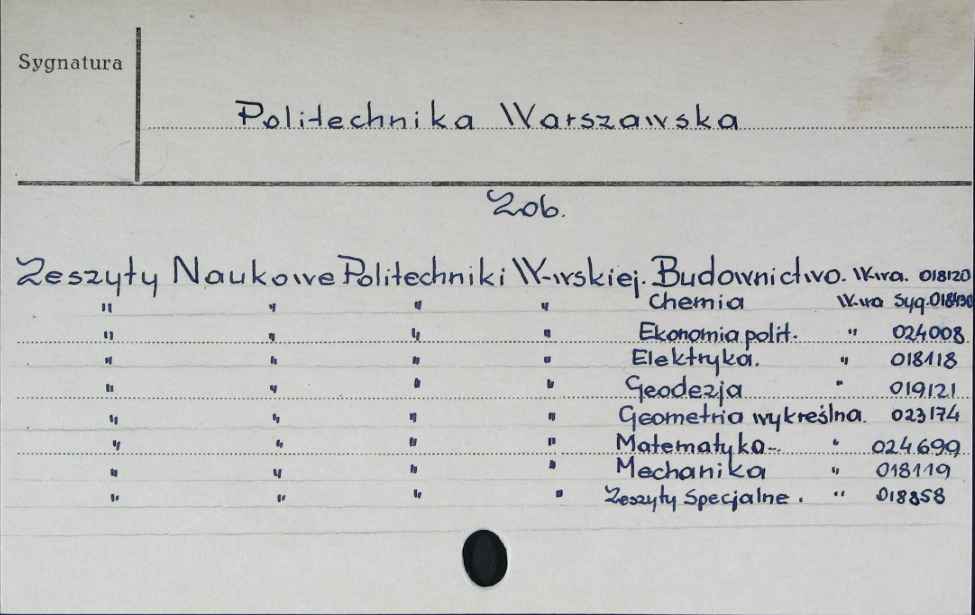 Sygnatura
Politechnika Warszawska
Zob.
Zeszyty Naukowe Politechniki W-wskiej. Budownictwo. W.wa. 018120
" " " " Chemia W.wa Syg. 018490
" " " " Ekonomia polit. " 024008
" " " " Elektryka. " 018118
" " " " Geodezja " 019121
" " " " Geometria wykreślna. 023174
" " " " Matematyka-. " 024699
" " " " Mechanika " 018119
" " " " Zeszyty Specjalne. " 018858